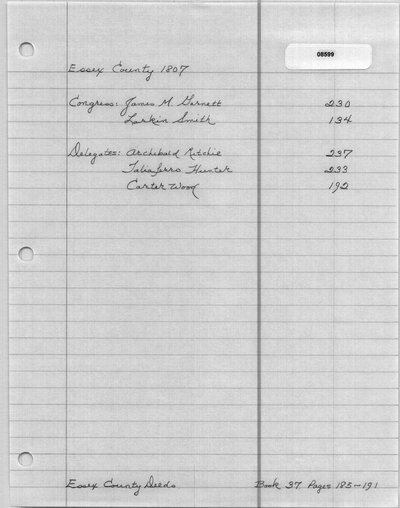 08599
Essex County 1807
Congress: James M. Garnett 230
Larkin Smith 134
Delegates: Archibald Ritchie 237
Taliaferro Hunter 233
Carter Wood 192
Essex County Deeds Book 37 Pages 185-191